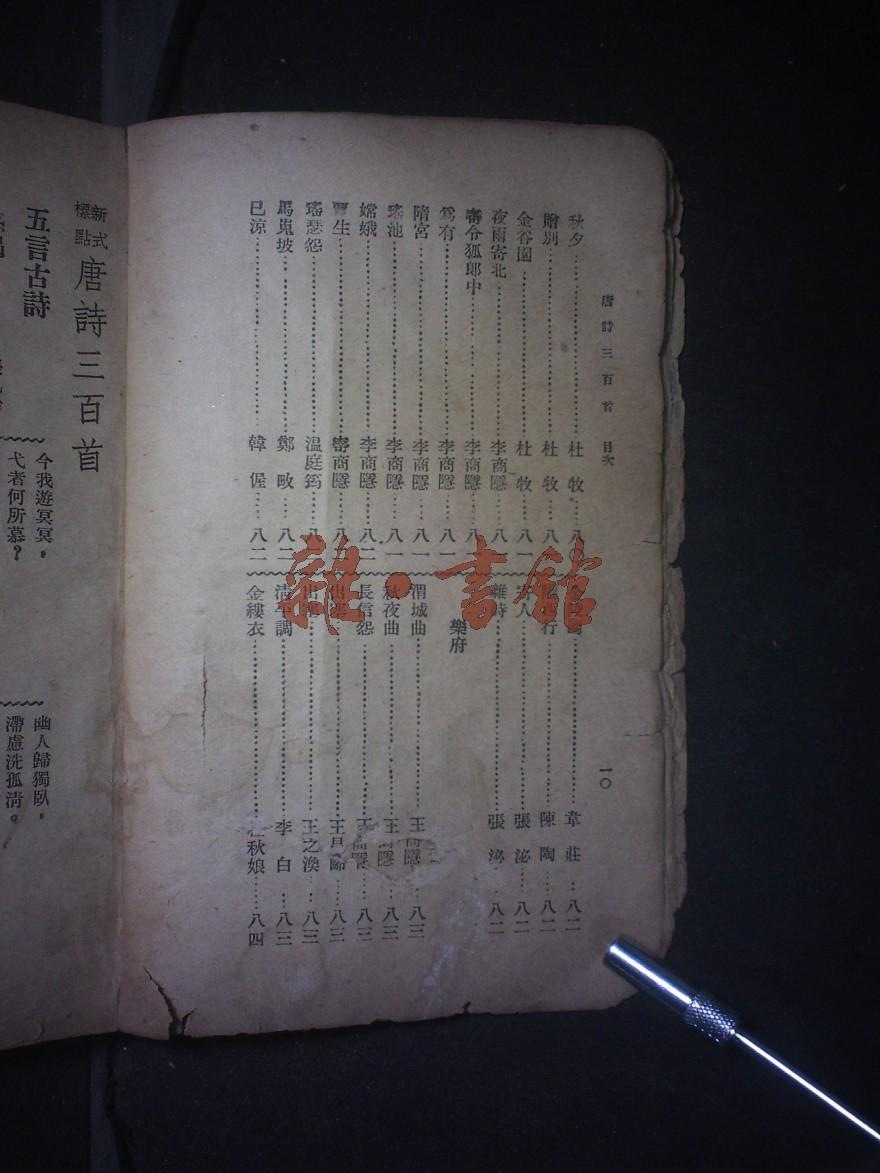 唐詩三百首 目次
一〇
秋夕……杜牧……八〇
贈別……杜牧……八
金谷園……杜牧……八一
夜雨寄北……李商隱……八
寄令狐郎中……李商隱……八
為有……李商隱……八一
隋宮……李商隱……八一
瑤池……李商隱……八一
嫦娥……李商隱……八二
賈生……李商隱……八二
瑤瑟怨……溫庭筠……八
馬嵬坡……鄭畋……八二
已涼……韓偓……八二
韋莊……八二
行……陳陶……八二
寄人……張泌……八二
雜詩……張泌……八二
樂府
渭城曲……王……八三
秋夜曲……王……八三
長信怨……王……八三
出塞……王昌齡……八三
出塞……王之渙……八三
清平調……李白……八三
金縷衣……秋娘……八四
雜·書館
新式標點 唐詩三百首
五言古詩
今我遊冥冥，
弋者何所慕？
幽人歸獨臥，
滯慮洗孤清。